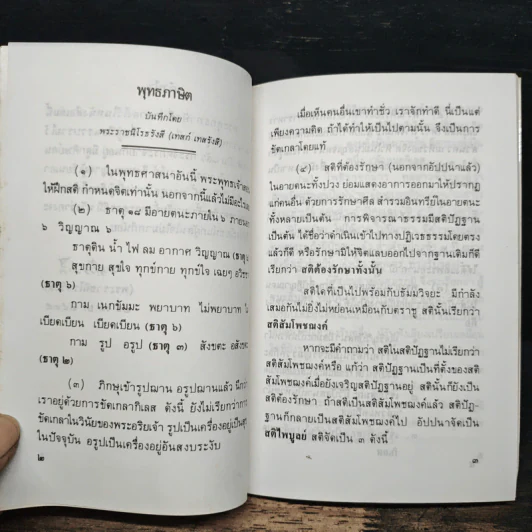 พุทธภาษิต
บันทึกโดย
พระราชนิโรธรังสี (เทสก์ เทสรังสี)
(๑) ในพุทธศาสนาอันนี้ พระพุทธเจ้าสอน
ให้ฝึกสติ กำหนดจิตเท่านั้น นอกจากนี้แล้วไม่มีอะไร
(๒) ธาตุ ๑๘ มีอายตนะภายใน ๖ ภายนอก
๖ วิญญาณ ๖
ธาตุดิน น้ำ ไฟ ลม อากาศ วิญญาณ (ธาตุ
สุขกาย สุขใจ ทุกข์กาย ทุกข์ใจ เฉยๆ อวิชชา
(ธาตุ ๖)
กาม เนกขัมมะ พยาบาท ไม่พยาบาท ไม่
เบียดเบียน เบียดเบียน (ธาตุ ๖)
กาม รูป อรูป (ธาตุ ๓) สังขตะ อสังขะ
(ธาตุ ๒)
(๓) ภิกษุเข้ารูปฌาน อรูปฌานแล้ว มีการ
เราอยู่ด้วยการขัดเกลากิเลส ดังนี้ ยังไม่เรียกว่าการ
ขัดเกลาในวินัยของพระอริยเจ้า รูปเป็นเครื่องอยู่เป็นสุข
ในปัจจุบัน อรูปเป็นเครื่องอยู่อันสงบระงับ
๒
เมื่อเห็นคนอื่นเขาทำชั่ว เราจักทำดี นี่เป็นแต่
เพียงความคิด ถ้าได้ทำให้เป็นไปตามนั้น จึงเป็นการ
ขัดเกลาโดยแท้
(๔) สติที่ต้องรักษา (นอกจากอัปปนาแล้ว)
ในอายตนะทั้งปวง ย่อมแสดงอาการออกมาให้ปรากฏ
แก่คนอื่น ด้วยการรักษาศีล สำรวมอินทรีย์ในอายตนะ
ทั้งหลายเป็นต้น การพิจารณาธรรมมีสติปัฏฐาน
เป็นต้น ได้ชื่อว่าดำเนินเข้าไปทางปฏิเวธธรรมโดยตรง
แล้วก็ดี หรือรักษามิให้จิตแลบออกไปจากฐานเดิมก็ดี
เรียกว่า สติต้องรักษาทั้งนั้น
สติใดที่เป็นไปพร้อมกับธัมมวิจยะ มีกำลัง
เสมอกันไม่ยิ่งไม่หย่อนเหมือนกับตราชู สตินั้นเรียกว่า
สติสัมโพชฌงค์
หากจะมีคำถามว่า สติในสติปัฏฐานไม่เรียกว่า
สติสัมโพชฌงค์หรือ แก้ว่า สติปัฏฐานเป็นที่ตั้งของสติ
สัมโพชฌงค์เมื่อยังเจริญสติปัฏฐานอยู่ สตินั้นก็ยังเป็น
สติต้องรักษา ถ้าสติเป็นสติสัมโพชฌงค์แล้ว สติปัฏ-
ฐานก็กลายเป็นสติสัมโพชฌงค์ไป อัปปนาจัดเป็น
สติไพบูลย์ สติจัดเป็น ๓ ดังนี้
๓